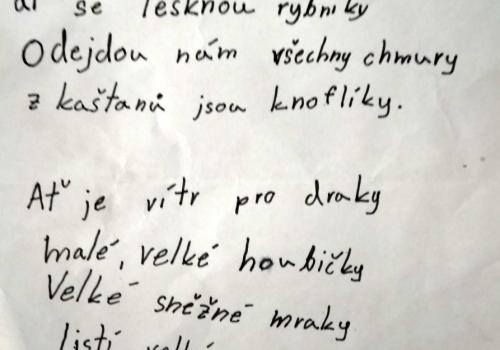 ať se lesknou rybníky
Odejdou nám všechny chmury
z kaštanů jsou knoflíky.
Ať je vítr pro draky
malé, velké houbičky
Velké sněžné mraky
listí velké